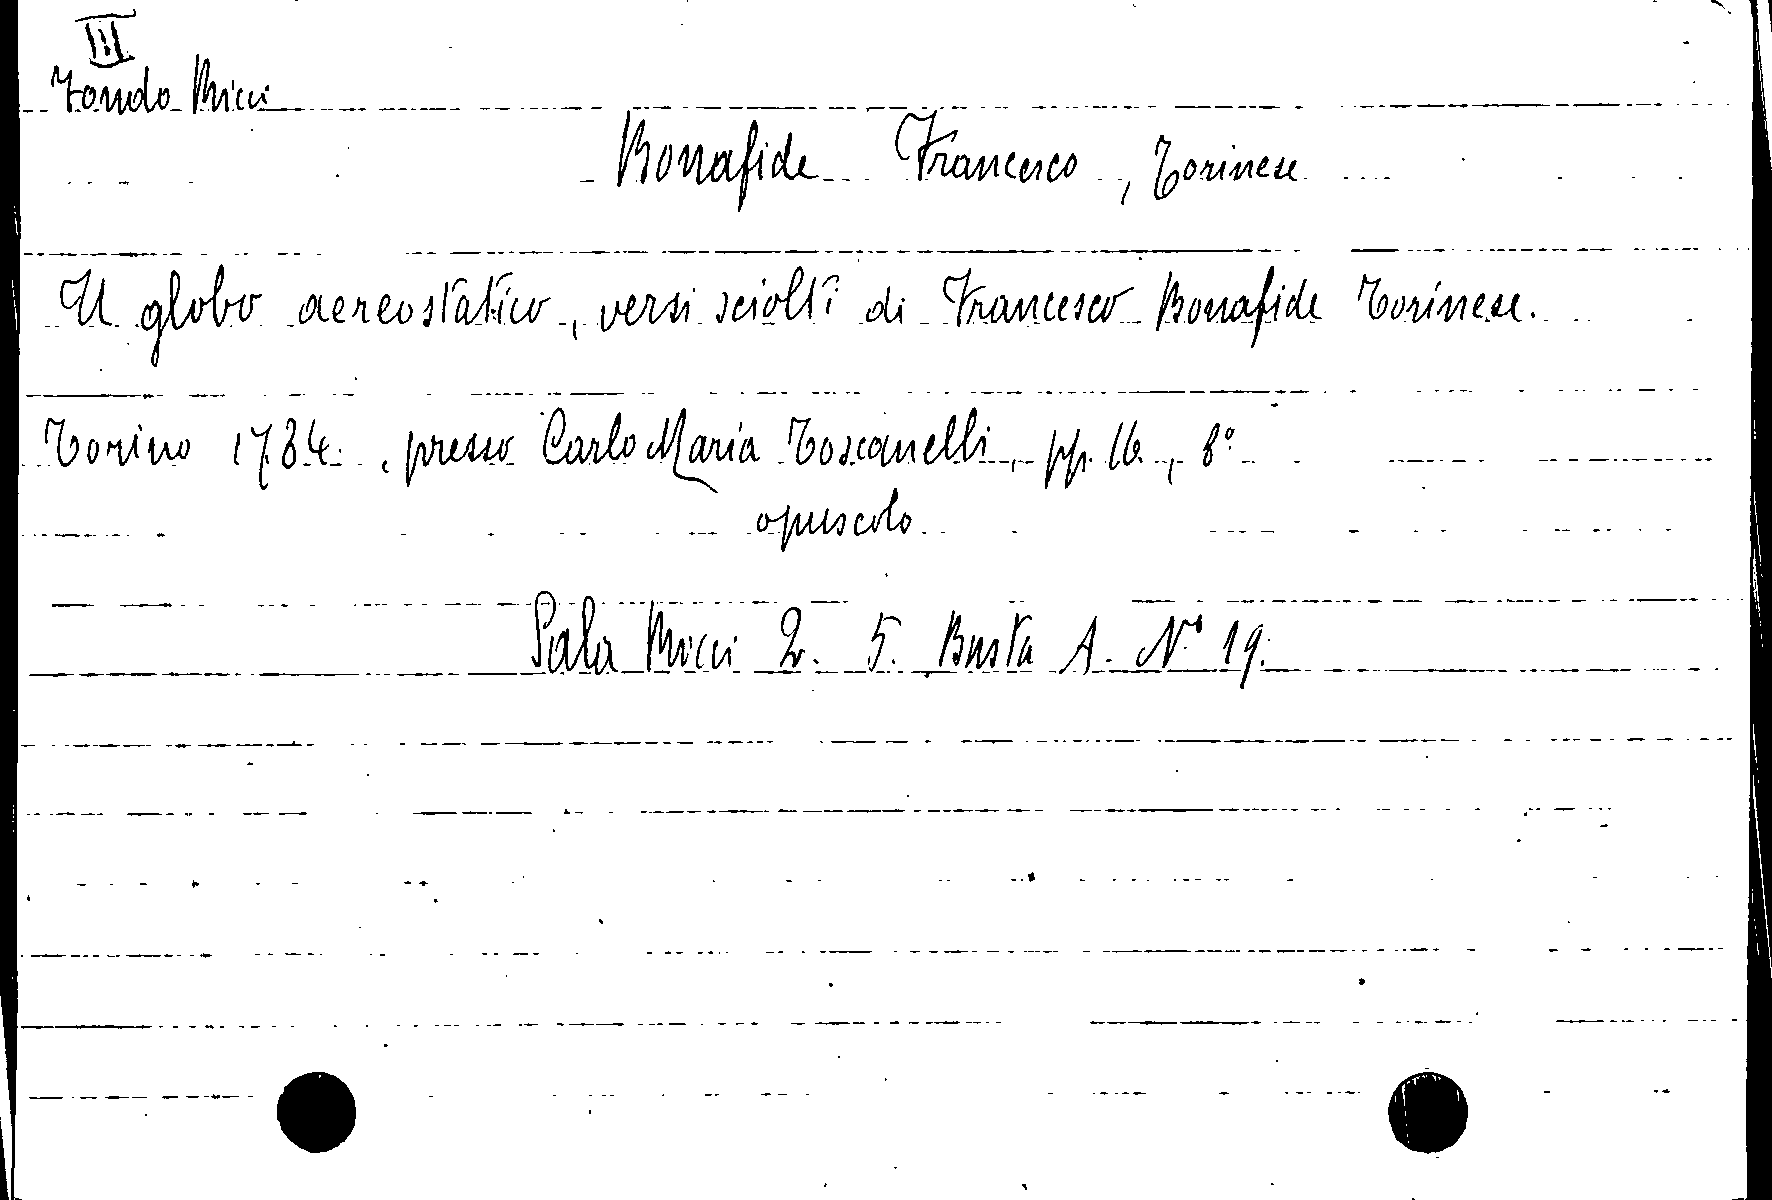 III
Fondo Ricci
Bonafide Francesco, Torinese
Il globo aereostatico, versi sciolti di Francesco Bonafide Torinese.
Torino 1784., presso Carlo Maria Toscanelli, pp. 16, 8°
opuscolo
Sala Ricci 2. 5. Busta A. N° 19.